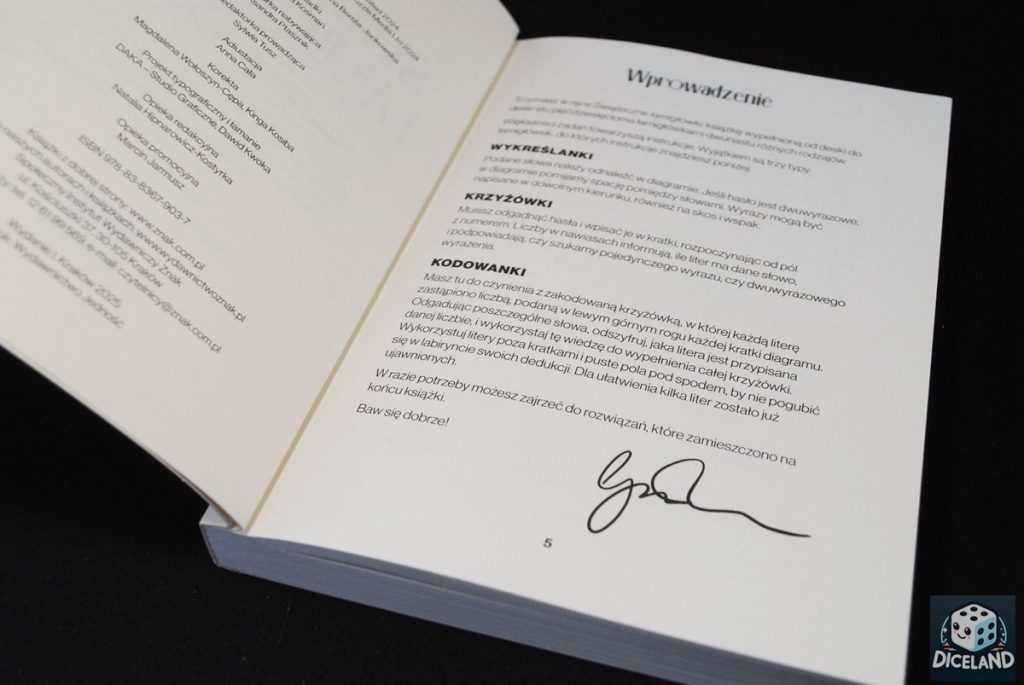 2024
Puzzle Media Ltd 2024
Sylwia Tusz
Adiustacja
Anna Cała
Korekta
Magdalena Wołoszyn-Cępa, Kinga Kosiba
Projekt typograficzny i łamanie
DAKA – Studio Graficzne, Dawid Kwoka
Opieka redakcyjna
Natalia Hipnarowicz-Kostyrka
Opieka promocyjna
Marcin Jarmusz
ISBN 978-83-8367-903-7
Książki z dobrej strony: www.znak.com.pl
naszych autorach i książkach: www.wydawnictwoznak.pl
Społeczny Instytut Wydawniczy Znak
ul. Kościuszki 37, 30-105 Kraków
tel. 12 61 99 569, e-mail: czytelnicy@znak.com.pl
Wydanie I, Kraków 2025
Wydawnictwo Jedność
Wprowadzenie
Trzymasz w ręce Świąteczne łamigłówki, książkę wypełnioną od deski do
deski stu pięćdziesięcioma łamigłówkami dwunastu różnych rodzajów.
Większości zadań towarzyszą instrukcje. Wyjątkiem są trzy typy
łamigłówek, do których instrukcje znajdziesz poniżej.
WYKREŚLANKI
Podane słowa należy odnaleźć w diagramie. Jeśli hasło jest dwuwyrazowe,
w diagramie pomijamy spację pomiędzy słowami. Wyrazy mogą być
napisane w dowolnym kierunku, również na skos i wspak.
KRZYŻÓWKI
Musisz odgadnąć hasła i wpisać je w kratki, rozpoczynając od pól
z numerem. Liczby w nawiasach informują, ile liter ma dane słowo,
i podpowiadają, czy szukamy pojedynczego wyrazu, czy dwuwyrazowego
wyrażenia.
KODOWANKI
Masz tu do czynienia z zakodowaną krzyżówką, w której każdą literę
zastąpiono liczbą, podaną w lewym górnym rogu każdej kratki diagramu.
Odgadując poszczególne słowa, odszyfruj, jaka litera jest przypisana
danej liczbie, i wykorzystaj tę wiedzę do wypełnienia całej krzyżówki.
Wykorzystuj litery poza kratkami i puste pola pod spodem, by nie pogubić
się w labiryncie swoich dedukcji. Dla ułatwienia kilka liter zostało już
ujawnionych.
W razie potrzeby możesz zajrzeć do rozwiązań, które zamieszczono na
końcu książki.
Baw się dobrze!
5
DICELAND